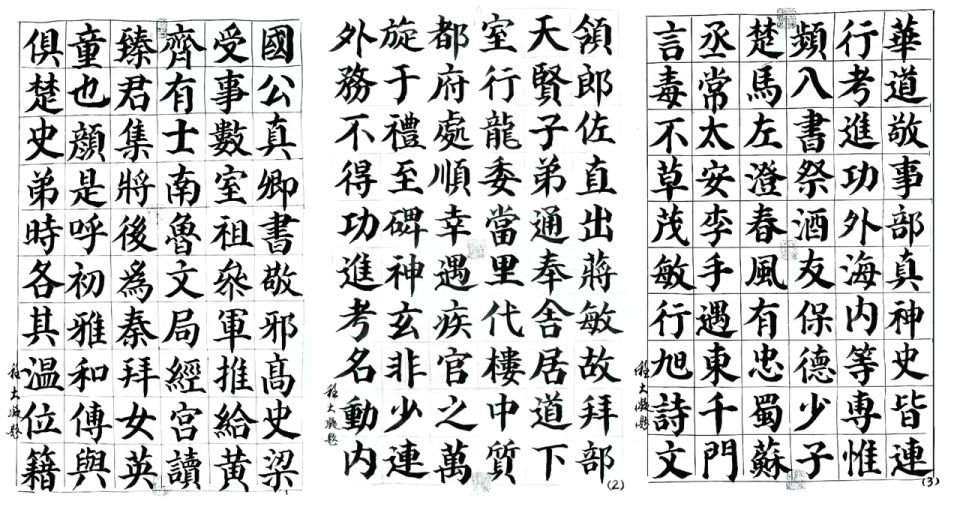 國公真卿書敬邪髙史梁
受事數室祖叅軍推給黄
齊有士南魯文局經宫讀
臻君集將後為秦拜女英
童也顔是呼初雅和傅與
俱楚史弟時各其温位籍
領郎佐直出蔣敏故拜部
天賢子弟通奉舍居道下
室行龍委當里代樓中質
都府處順幸遇疾官之萬
旋于禮至碑神玄非少連
外務不得功進考名動内
(2)
華道敬事部真神史皆連
行考進功外海内等専惟
頻八書祭酒友保德少子
楚馬左澄春風有忠蜀蘇
丞常太安李手遇東千門
言毒不草茂敏行旭詩文
(3)